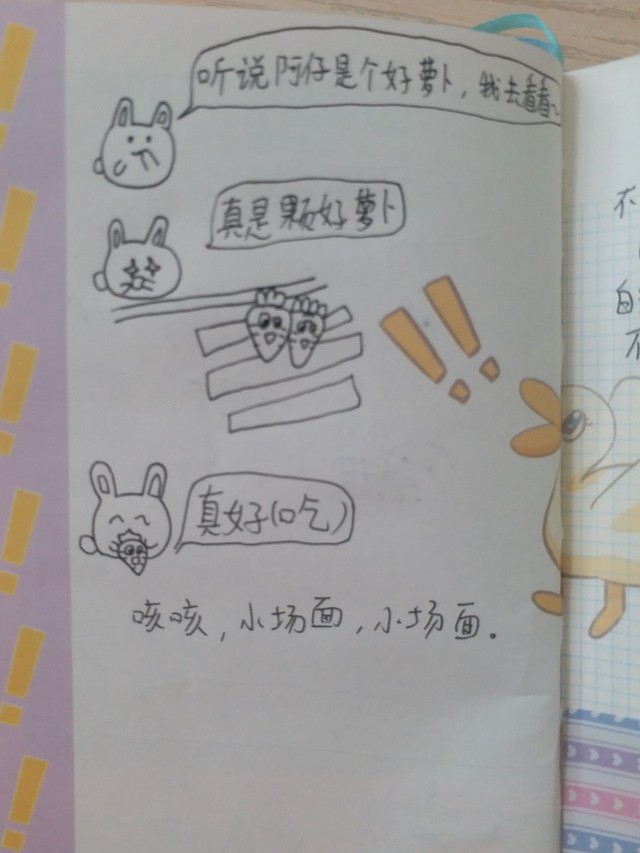 听说阿仔是个好萝卜，我去看看~
真是颗好萝卜
真好(吃)
咳咳，小场面，小场面。
不
自
不